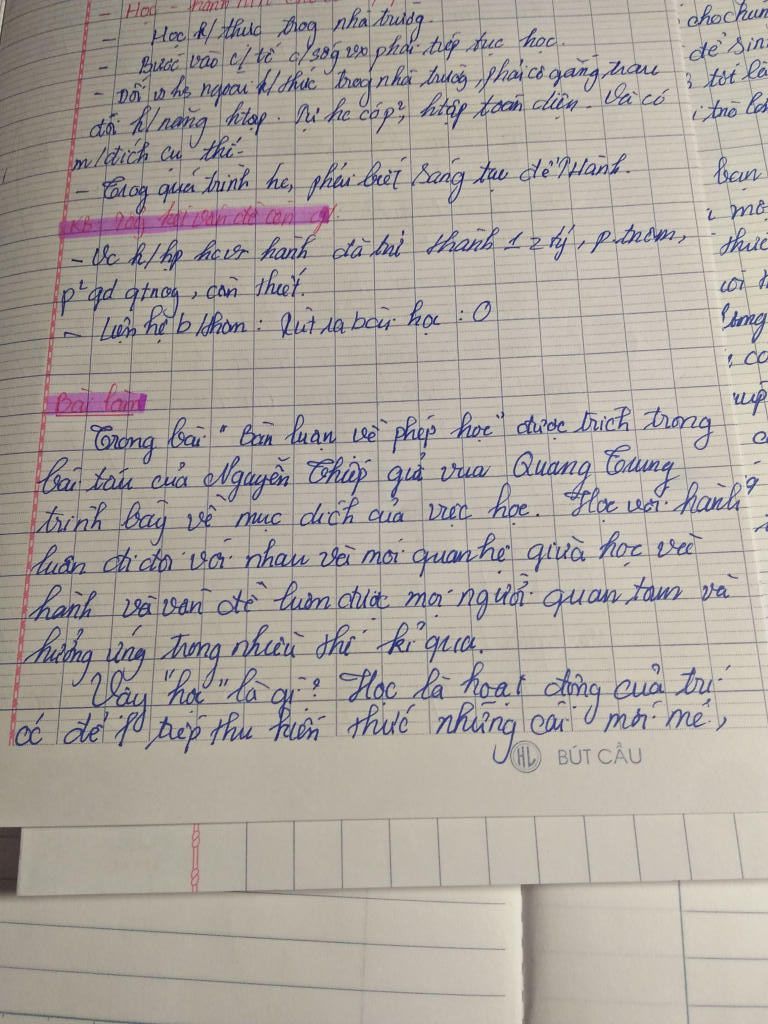 - Học - hành
- Học k/thức trog nhà trường.
- Bước vào c/tế c/sog vx phải tiếp tục học.
- Đối vs hs ngoài k/thức trog nhà trường, phải cố gắng trau
dồi k/năng htập. Tự hc có p², htập toàn diện. Và có
m/đích cụ thể.
- Trog quá trình hc, phải biết sáng tạo để "Hành.
KB:
- Vc k/hp hc vs hành đã trở thành 1 z lý, p.trâm,
p² gd qtrog, cần thiết.
- Liên hệ b/thân: Rút ra bài học : O
Bài làm
Trong bài "Bàn luận về phép học" được trích trong
bài tấu của Nguyễn Thiếp gửi vua Quang Trung
trình bày về mục đích của việc học. Học với hành
luôn đi đôi với nhau và mối quan hệ giữa học với
hành và vấn đề luôn được mọi người quan tâm và
hưởng ứng trong nhiều thế kỉ qua.
Vậy "học" là gì? Học là hoạt động của trí
óc để tiếp thu kiến thức những cái mới mẻ,
HL BÚT CẦU
cho chún
để sin
tôi là
trò lớ
bạn
mô
thức
với
cơ